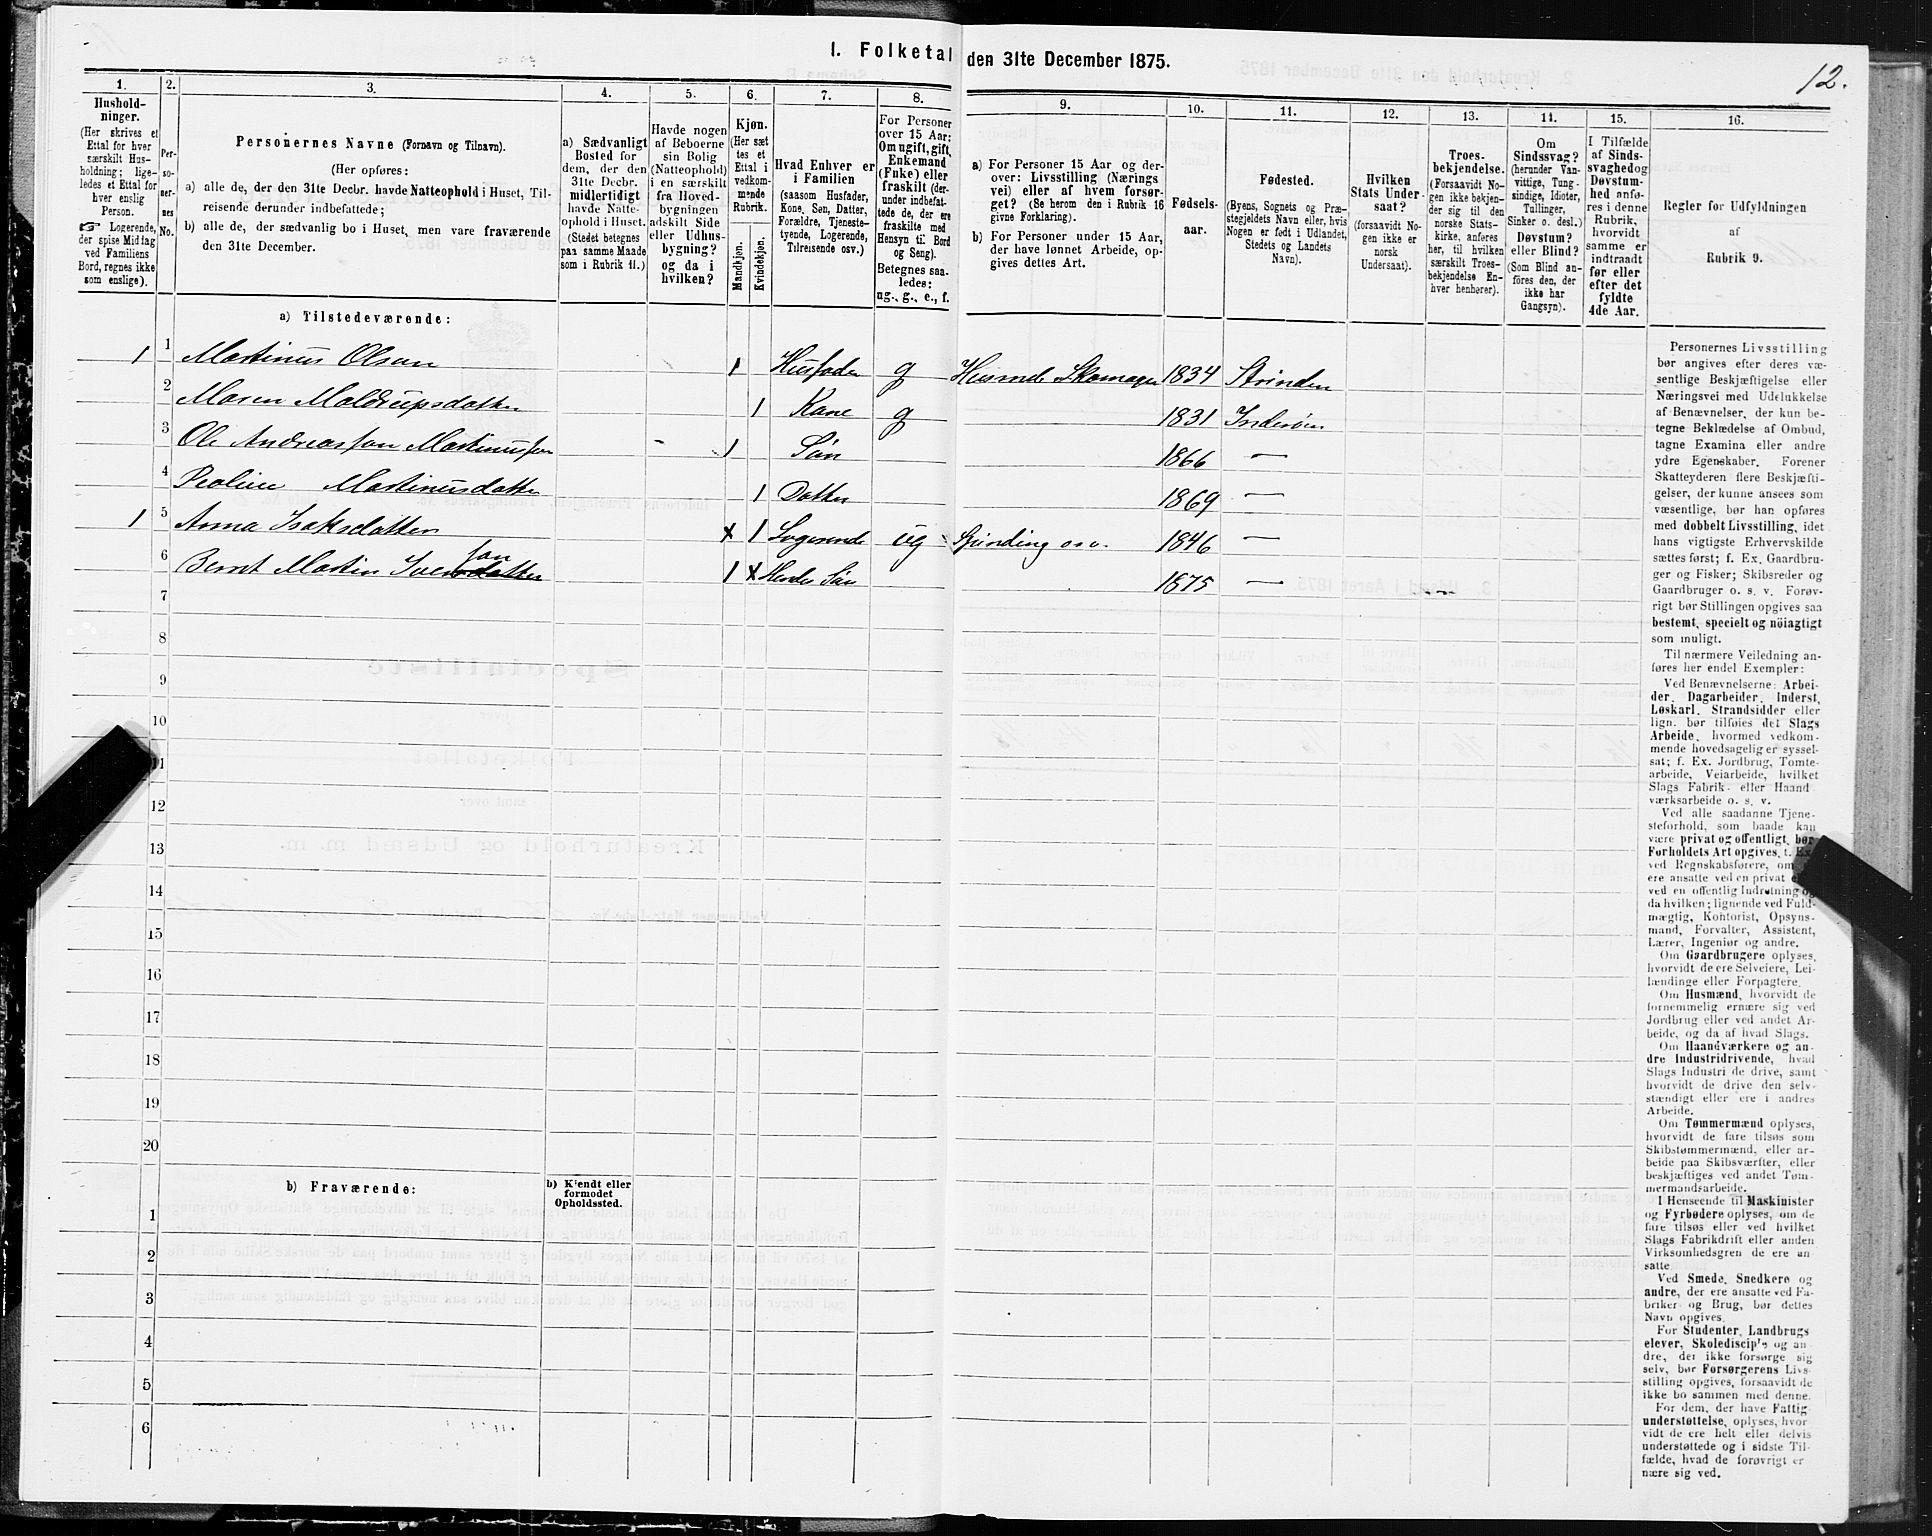 I. Folketal den 31te December 1875.
12.
1.
Hushold-
ninger.
(Her skrives et
Ettal for hver
særskilt Hus-
holdning; lige-
ledes et Ettal for
hver enslig
Person.
☞ Logerende,
der spise Middag
ved Familiens
Bord, regnes ikke
som enslige).
2.
Per-
so-
ner-
nes
No.
3.
Personernes Navne (Fornavn og Tilnavn).
(Her opføres:
a) alle de, der den 31te Decbr. havde Natteophold i Huset, Til-
reisende derunder indbefattede;
b) alle de, der sædvanlig bo i Huset, men vare fraværende
den 31te December.
4.
a) Sædvanligt
Bosted for
dem, der den
31te Decbr.
midlertidigt
havde Natte-
ophold i Huset.
(Stedet betegnes
paa samme Maade
som i Rubrik 11.)
5.
Havde nogen
af Beboerne
sin Bolig
(Natteophold)
i en særskilt
fra Hoved-
bygningen
adskilt Side
eller Udhus-
bygning?
og da i
hvilken?
6.
Kjøn.
(Her sæt
tes et
Ettal i
vedkom-
mende
Rubrik.
Mandkjøn.
Kvindekjøn.
7.
Hvad Enhver er
i Familien
(saasom Husfader,
Kone, Søn, Datter,
Forældre, Tjeneste-
tyende, Logerende,
Tilreisende osv.)
8.
For Personer
over 15 Aar:
Om ugift, gift,
Enkemand
(Enke) eller
fraskilt (der-
under indbefat-
tede de, der ere
fraskilte med
Hensyn til Bord
og Seng).
Betegnes saa-
ledes:
ug., g., e., f.
9.
a) For Personer 15 Aar og der-
over: Livsstilling (Nærings
vei) eller af hvem forsør-
get? (Se herom den i Rubrik 16
givne Forklaring).
b) For Personer under 15 Aar,
der have lønnet Arbeide, op-
gives dettes Art.
10.
Fødsels-
aar.
11.
Fødested.
(Byens, Sognets og Præ-
stegjeldets Navn eller, hvis
Nogen er født i Udlandet,
Stedets og Landets
Navn).
12.
Hvilken
Stats Under-
saat?
(forsaavidt No-
gen ikke er
norsk
Undersaat).
13.
Troes-
bekjendelse.
(Forsaavidt No-
gen ikke bekjen-
der sig til den
norske Stats-
kirke, anføres
her, til hvilken
særskilt Troes-
bekjendelse En-
hver henhører).
14.
Om
Sindssvag?
(herunder Van-
vittige, Tung-
sindige, Idioter,
Tullinger,
Sinker o. desl.)
Døvstum?
eller Blind?
(Som Blind an-
føres den, der
ikke har
Gangsyn).
15.
I Tilfælde
af Sinds-
svaghed og
Døvstum-
hed anfø-
res i denne
Rubrik,
hvorvidt
samme er
indtraadt
før eller
efter det
fyldte
4de Aar.
16.
Regler for Udfyldningen
af
Rubrik 9.
a) Tilstedeværende:
1 1 Martinus Olsen 1 Husfader g Husmd. Skomager 1834 Strinden
2 Maren Maldrupsdatter 1 Kone g 1831 Inderøen
3 Ole Andreassen Martinussen 1 Søn 1866 —
4 Peoline Martinusdatter 1 Datter 1869 —
1 5 Anna Isaksdatter x 1 Logerende ug Spinding osv. 1846 —
6 Bernt Martin Iversdatter søn 1 x Hendes Søn 1875 —
7
8
9
10
11
12
13
14
15
16
17
18
19
20
b) Fraværende:
b) Kjendt eller
formodet
Opholdssted.
1
2
3
4
5
6
Personernes Livsstilling
bør angives efter deres væ-
sentlige Beskjæftigelse eller
Næringsvei med Udelukkelse
af Benævnelser, der kun be-
tegne Beklædelse af Ombud,
tagne Examina eller andre
ydre Egenskaber. Forener
Skatteyderen flere Beskjæfti-
gelser, der kunne ansees som
væsentlige, bør han opføres
med dobbelt Livsstilling, idet
hans vigtigste Erhvervskilde
sættes først; f. Ex. Gaardbru-
ger og Fisker; Skibsreder og
Gaardbruger o. s. v. Forøv-
rigt bør Stillingen opgives saa
bestemt, specielt og nöiagtigt
som muligt.
Til nærmere Veiledning an-
føres her endel Exempler:
Ved Benævnelserne: Arbei-
der, Dagarbeider, Inderst,
Løskarl, Strandsidder eller
lign. bør tilføies det Slags
Arbeide, hvormed vedkom-
mende hovedsagelig er syssel-
sat; f. Ex. Jordbrug, Tomte-
arbeide, Veiarbeide, hvilket
Slags Fabrik- eller Haand
værksarbeide o. s. v.
Ved alle saadanne Tjene-
steforhold, som baade kan
være privat og offentligt, bør
Forholdets Art opgives, f. Ex.
ved Regnskabsførere, om
ere ansatte ved en privat
ved en offentlig Indretning og
da hvilken; lignende ved Fuld-
mægtig, Kontorist, Opsyns-
mand, Forvalter, Assistent,
Lærer, Ingeniør og andre.
Om Gaardbrugere oplyses,
hvorvidt de ere Selveiere, Lei-
lændinge eller Forpagtere.
Om Husmænd, hvorvidt de
fornemmelig ernære sig ved
Jordbrug eller ved andet Ar-
beide, og da af hvad Slags.
Om Haandværkere og an-
dre Industridrivende, hvad
Slags Industri de drive, samt
hvorvidt de drive den selv-
stændigt eller ere i andres
Arbeide.
Om Tømmermænd oplyses,
hvorvidt de fare tilsøs som
Skibstømmermænd, eller ar-
beide paa Skibsværfter, eller
beskjæftiges ved andet Tøm-
mermandsarbeide.
I Henseende til Maskinister
og Fyrbødere oplyses, om de
fare tilsøs eller ved hvilket
Slags Fabrikdrift eller anden
Virksomhedsgren de ere an-
satte
Ved Smede, Snedkere og
andre, der ere ansatte ved Fa-
briker og Brug, bør dettes
Navn opgives.
For Studenter, Landbrugs
elever, Skoledisciple og an-
dre, der ikke forsørge sig
selv, bør Forsørgerens Livs-
stilling opgives, forsaavidt de
ikke bo sammen med denne.
For dem, der have Fattig-
understøttelse, oplyses, hvor
vidt de ere helt eller delvis
understøttede og i sidste Til-
fælde, hvad de forøvrigt er
nære sig ved.